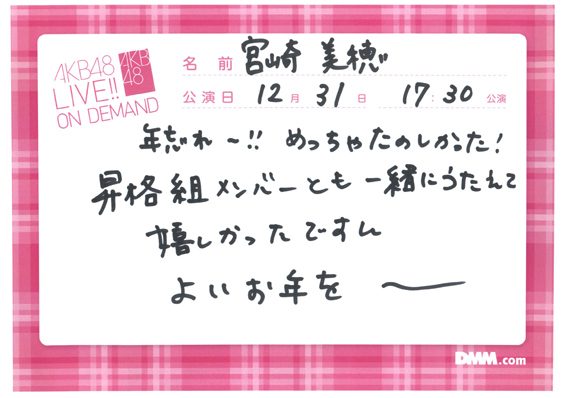 AKB48
LIVE!!
ON DEMAND
AKB
48
名前 宮崎 美穂
公演日 12月 31日 17:30 公演
年忘れ〜!! めっちゃたのしかった!
昇格組メンバーとも一緒にうたえて
嬉しかったですん
よいお年を 〜
DMM.com